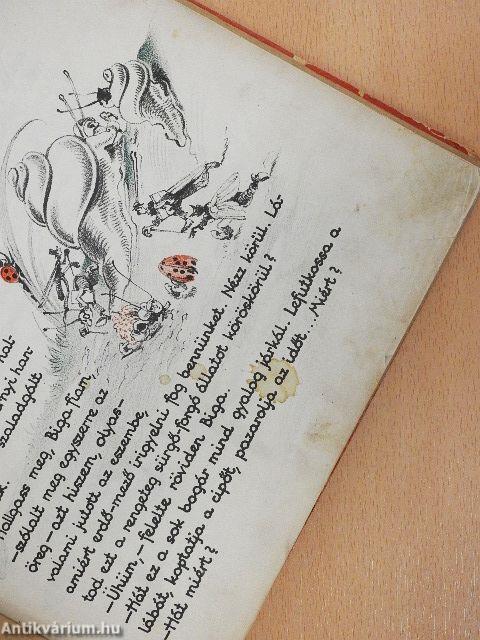 hal-
ányi han-
szaladgált
k.
Hallgass meg, Biga-fiam,
-szólalt meg egyszerre az
öreg-azt hiszem, olyas-
valami jutott az eszembe,
amiért erdő-mező irigyelni fog bennünket. Nézz körül. Lá-
tod azt a rengeteg sürgő-forgó állatot köröskörül?
-Ühüm,-felelte röviden Biga.
-Hát ez a sok bogár mind gyalog járkál. Lefutkossa a
lábát, koptatja a cipőt, pazarolja az időt... Miért?
-Hát miért?
Antikvárium.hu